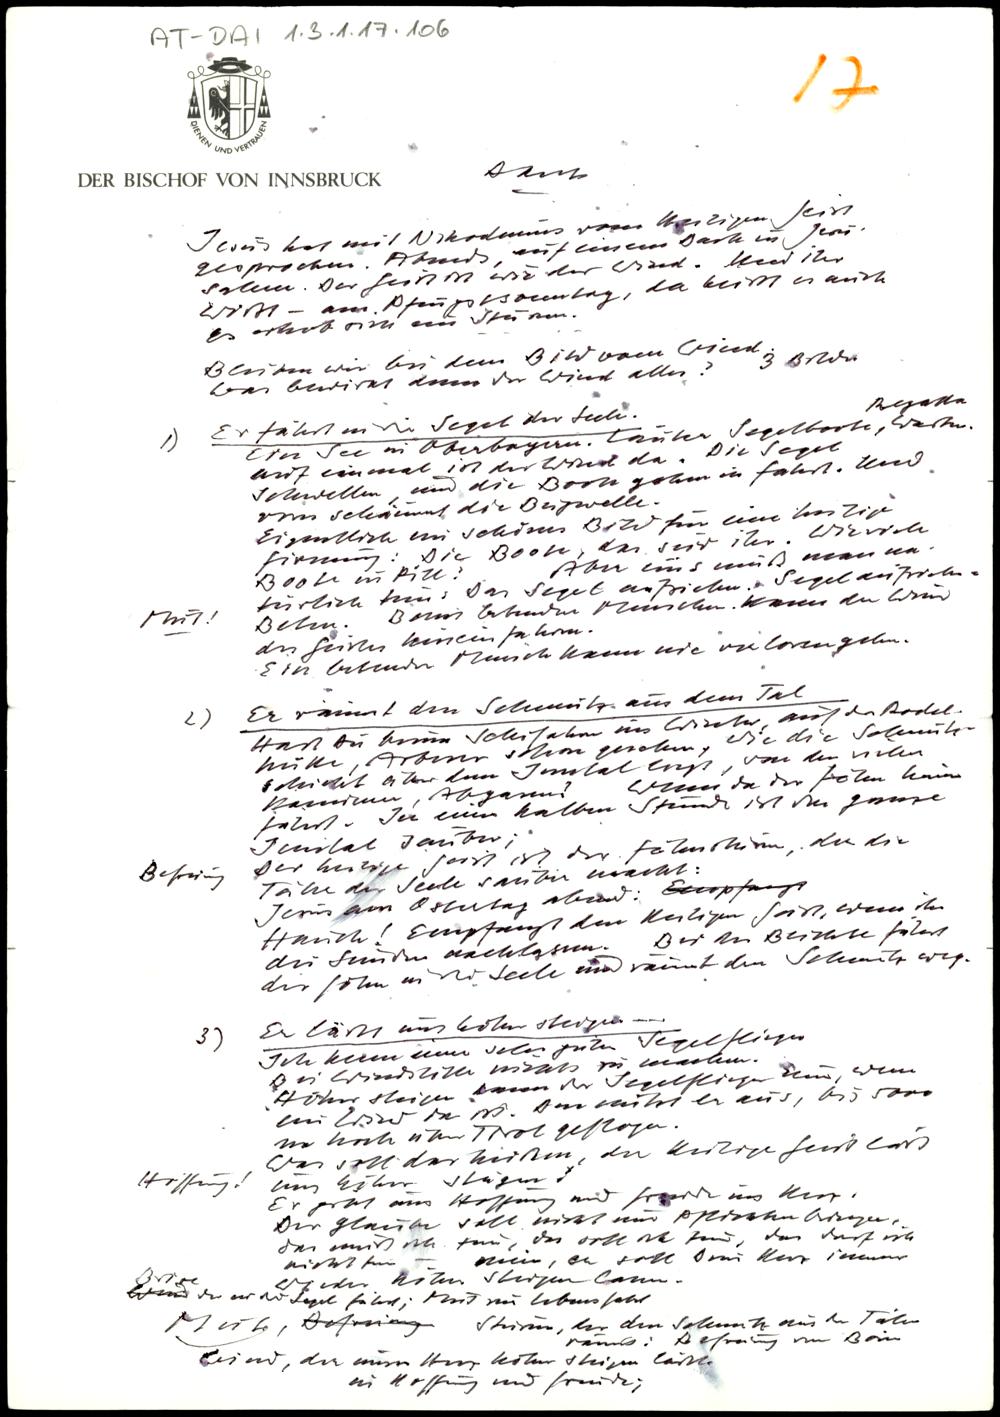 AT-DAI 1.3.1.17.106
17
DIENEN UND VERTRAUEN
DER BISCHOF VON INNSBRUCK
Jesus hat mit Nikodemus vom Heiligen Geist
gesprochen. Abends, auf einem Dach in Jeru-
salem. Der Geist ist wie der Wind. Und ihr
wißt - am Pfingstsonntag, da heißt es auch
Es erhob sich ein Sturm.
Bleiben wir bei dem Bild vom Wind. 3 Bilder
Was bewirkt denn der Wind alles?
1) Er fährt in die Segel der Seele.
Regatta
Ein See in Oberbayern. Lauter Segelboote, warten.
Auf einmal ist der Wind da. Die Segel
schwellen, und die Boote gehen in Fahrt. Und
vorn schäumt die Bugwelle.
Eigentlich ein schönes Bild für eine heilige
Firmung: Die Boote, das seid ihr. Wieviele
Boote in Pill? Aber eins muß man na-
türlich tun: Das Segel aufziehen. Segel aufziehn =
Mut! Beten. Beim betenden Menschen kann der Wind
des Geistes hineinfahren.
Ein betender Mensch kann nie verlorengehn.
2) Er räumt den Schmutz aus dem Tal
Hast Du beim Schifahren im Winter, auf der Rodel-
hütte, schon gesehen, wie die Schmutz-
schicht über dem Inntal liegt, von den vielen
Kaminen, Abgasen? Wenn da der Föhn hinein
fährt. In einer halben Stunde ist das ganze
Inntal sauber;
Der heilige Geist ist der Föhnsturm, der die
Befreiung Täler der Seele sauber macht:
Jesus am Ostertag abend: Empfangt
Hauch! Empfangt den Heiligen Geist, wenn ihr
die Sünden nachlassen. Bei der Beichte fährt
der Föhn in die Seele und räumt den Schmutz weg.
3) Er läßt uns höher steigen
Ich kenn einen sehr guten Segelflieger
Bei Windstille nichts zu machen.
Höher steigen kann der Segelflieger nur, wenn
ein Wind da ist. Den nützt er aus, bis 5000
m hoch über Tirol geflogen.
Was soll das heißen, der Heilige Geist läßt
Hoffnung! uns höher steigen?
Er gibt uns Hoffnung und Freude ins Herz.
Der Glaube soll nicht nur Pflichten bringen,
das muß ich tun, das soll ich tun, das darf ich
nicht tun - nein, er soll Dein Herz immer
wieder höher steigen lassen.
Brise
Wind der in die Segel fährt; Mut zur Lebensfahrt
Befreiung Sturm, der den Schmutz aus den Tälern
räumt: Befreiung vom Bösen
Wind, der unser Herz höher steigen läßt
in Hoffnung und Freude;